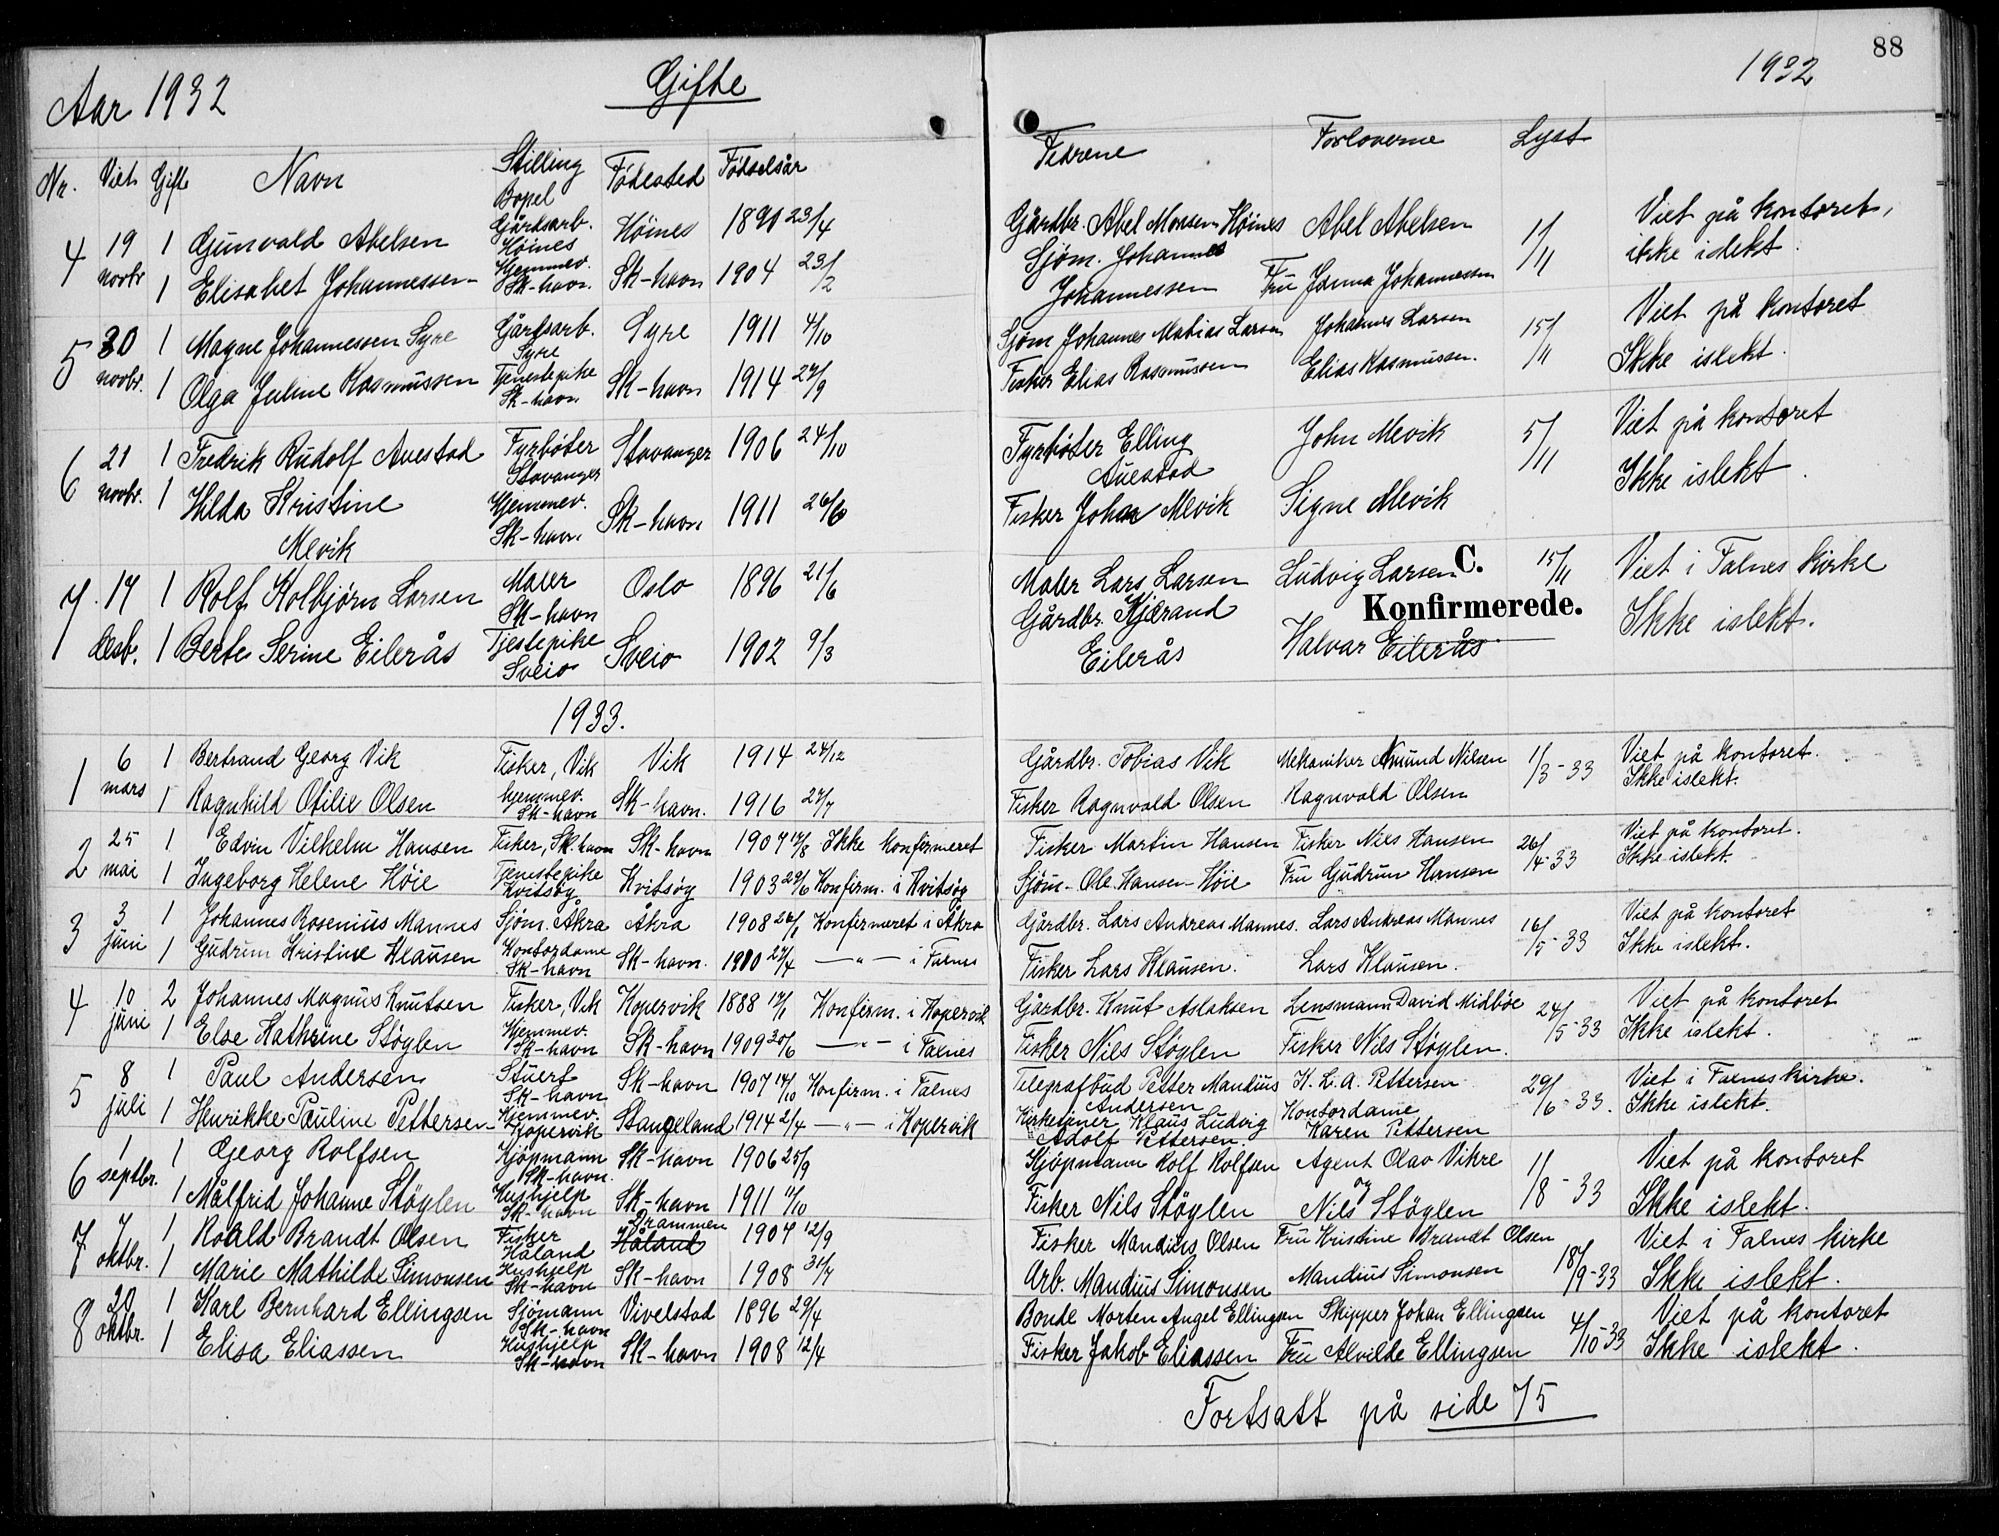 88
Aar 1932 Gifte 1932
Nr. Viet Gift Navn Stilling Bopel Fødested Fødselsår Fedrene Forloverne Lyst
4 19 novbr 1 Gunvald Abelsen Gårdsarb. Høines Høines 1890 23/4 Gårdbr. Abel Monsen Høines Abel Abelsen 1/11 Viet på kontoret,
1 Elisabet Johannessen Hjemmev. Sk-havn. Sk-havn 1904 23/2 Sjøm. Johannes Johannessen Fru Johannessen ikke islekt.
5 30 novbr. 1 Magne Johannessen Syre Gårdsarb. Syre Syre 1911 4/10 Sjøm Johannes Matias Larsen Johannes Larsen 15/11 Viet på kontoret
1 Olga Juline Rasmussen Tjenestepike Sk-havn Sk-havn 1914 27/9 Fisker Elias Rasmussen Elias Rasmussen. Ikke islekt.
6 21 novbr. 1 Fredrik Rudolf Auestad Fyrbøter Stavanger Stavanger 1906 24/10 Fyrbøter Elling Auestad John Mevik 5/11 Viet på kontoret
1 Hilda Kristine Mevik Hjemmev. Sk-havn. Sk-havn 1911 26/6 Fisker John Mevik Signe Mevik Ikke islekt.
C.
Konfirmerede.
7. 17 desb. 1 Rolf Kolbjørn Larsen Maler Sk-havn Oslo 1896 21/6 Maler Lars Larsen Ludvig Larsen 15/11 Viet i Falnes kirke
1 Berte Serine Eilerås Tjestepike Sveio Sveio 1902 9/3 Gårdbr. Kjærand Eilerås Halvar Eilerås Ikke islekt.
1933.
1 6 mars 1 Bertrand Georg Vik Fisker, Vik Vik 1914 24/12 Gårdbr. Tobias Vik Mekaniker Amund Nilsen 1/3-33 Viet på kontoret.
1 Ragnhild Otilie Olsen hjemmev. Sk-havn Sk-havn. 1916 27/7 Fisker Ragnvald Olsen Ragnvald Olsen Ikke islekt.
2 25 mai 1 Edvin Vilhelm Hansen Fisker, Sk-havn Sk-havn 1907 17/8 Ikke konfirmeret Fisker Martin Hansen Fisker Nils Hansen 26/4-33 Viet på kontoret.
1 Ingeborg Helene Høie Tjenestepike Kvitsøy Kvitsøy 1903 29/6 Konfirm. i Kvitsøy Sjøm- Ole Hansen-Høie Fru Gudrun Hansen Ikke islekt.
3 3 juni 1 Johannes Rosenius Mannes Sjøm. Åkra Åkra 1908 26/1 Konfirmeret i Åkra Gårdbr. Lars Andreas Mannes. Lars Andreas Mannes 16/5-33 Viet på kontoret
1 Gudrun Kristine Klausen Kontordame Sk-havn Sk-havn. 1910 27/4 —"— i Falnes Fisker Lars Klausen. Lars Klausen. Ikke islekt.
4 10 juni 2 Johannes Magnus Knutsen Fisker, Vik Kopervik 1888 17/1 Konfirm. i Kopervik Gårdbr. Knut Aslaksen Lensmann David Midbøe 24/5-33 Viet på kontoret
1 Else Kathrine Støylen Hjemmev. Sk-havn Sk-havn 1909 30/6 —"— i Falnes Fisker Nils Støylen Fisker Nils Støylen. Ikke islekt.
5 8 juli 1 Paul Andersen Stuert Sk-havn Sk-havn 1907 14/10 Konfirm. i Falnes Telegrafbud Petter Mandius Andersen K. L. A. Pettersen 29/6-33. Viet i Falnes kirke.
1 Henrikke Pauline Pettersen Hjemmev. Kopervik Stangeland 1914 2/4 —"— i Kopervik Kirketjener Klaus Ludvig Adolf Pettersen. Kontordame Karen Pettersen Ikke islekt.
6 1 septbr. 1 Georg Rolfsen Kjøpmann Sk-havn. Sk-havn 1906 25/9 Kjøpmann Rolf Rolfsen Agent Olav Vikre og 1/8-33 Viet på kontoret
1 Målfrid Johanne Støylen Hushjelp Sk-havn Sk-havn 1911 11/10 Fisker Nils Støylen Nils Støylen Ikke islekt.
7 7 oktbr. 1 Roald Brandt Olsen Fisker Håland Drammen Håland 1904 12/9 Fisker Mandius Olsen Fru Kristine Brandt Olsen 18/9-33 Viet i Falnes kirke
1 Marie Mathilde Simonsen Hushjelp Sk-havn Sk-havn 1908 31/7 Arb. Mandius Simonsen Mandius Simonsen Ikke islekt.
8 20 oktbr. 1 Karl Bernhard Ellingsen Sjømann Sk-havn Vivelstad 1896 29/4 Bonde Morten Angel Ellingsen Skipper Johan Ellingsen 4/10-33 Viet på kontoret
1 Elisa Eliassen Hushjelp Sk-havn Sk-havn 1908 12/4 Fisker Jakob Eliassen Fru Alvilde Ellingsen Ikke islekt.
Fortsatt på side 75